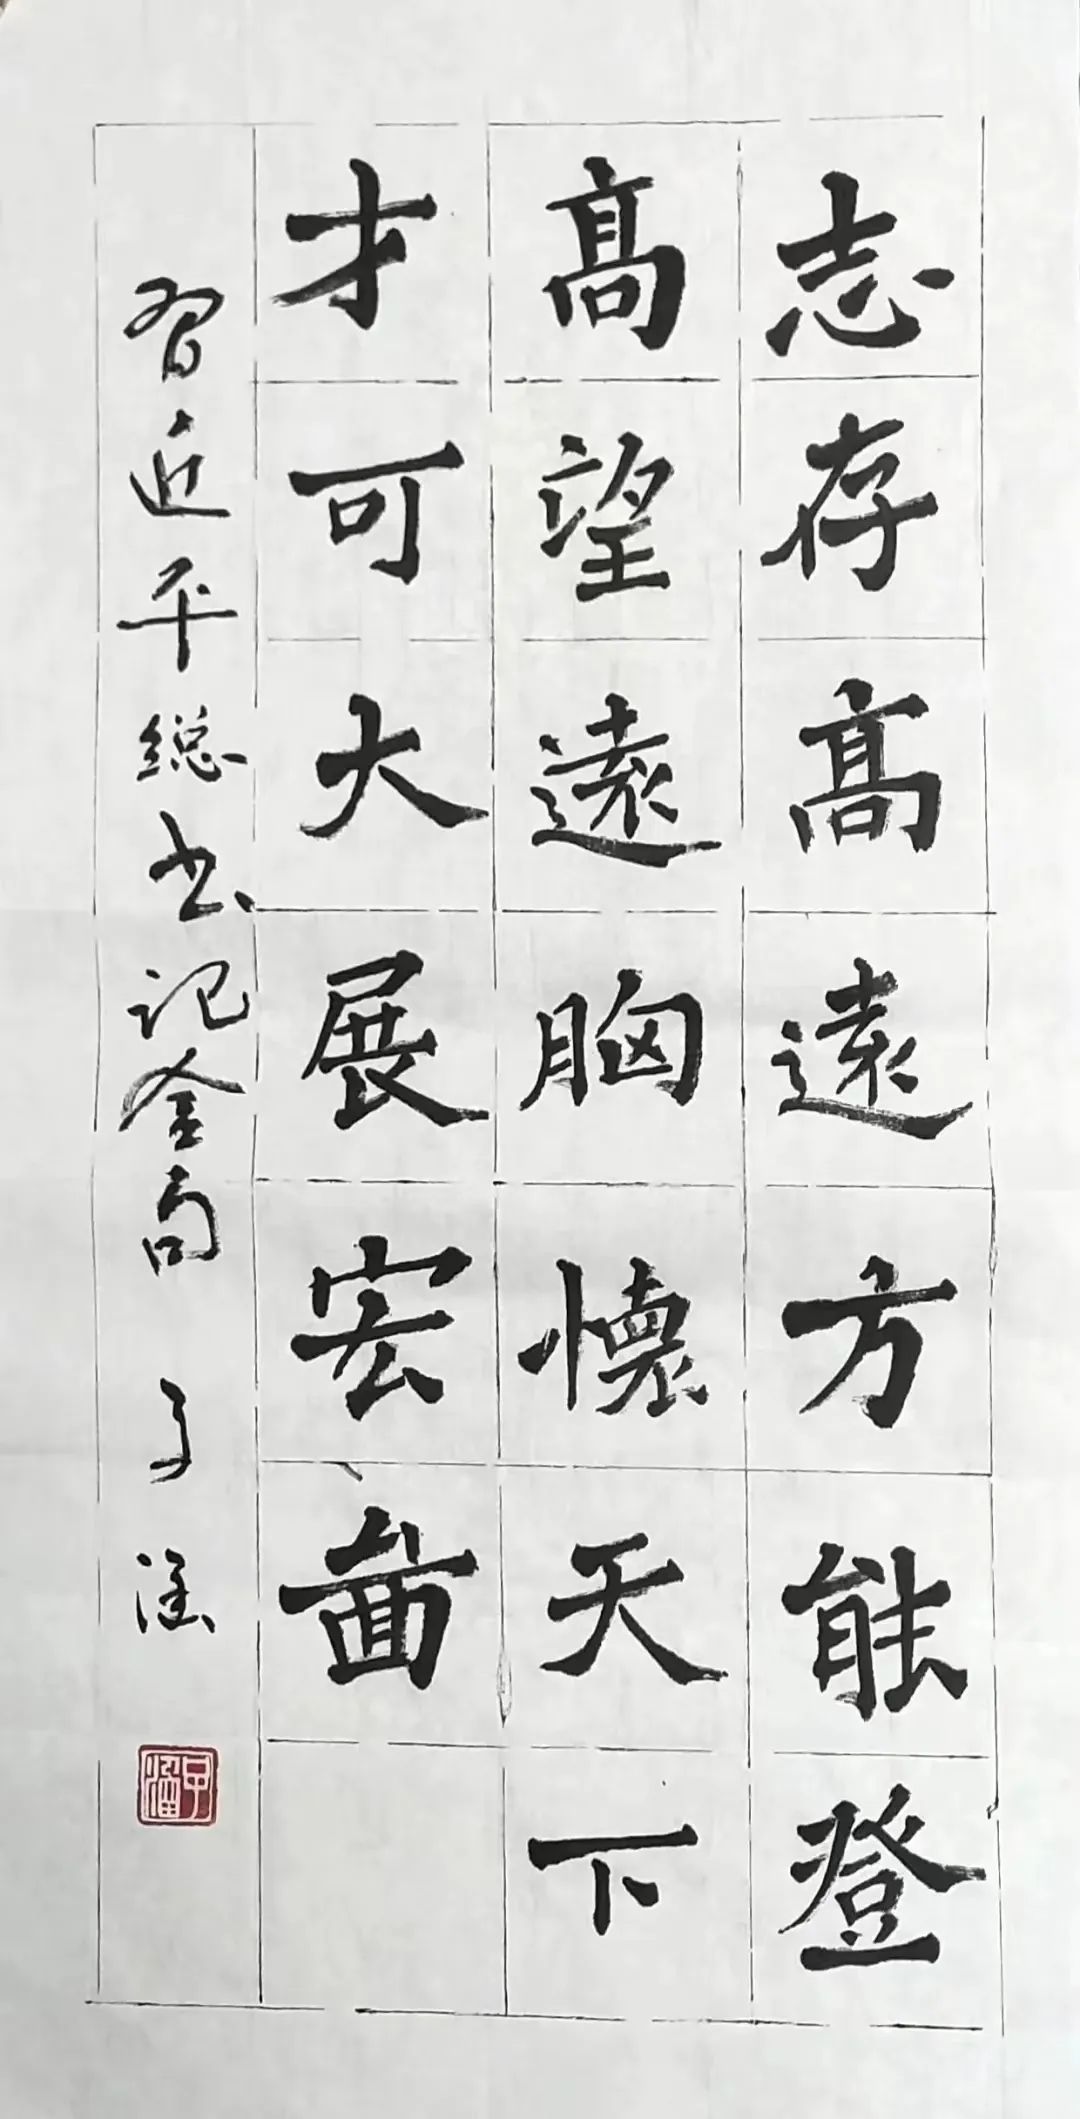 志存高遠方能登
高望遠胸懷天下
才可大展宏啚
習近平總书记金句 子涵